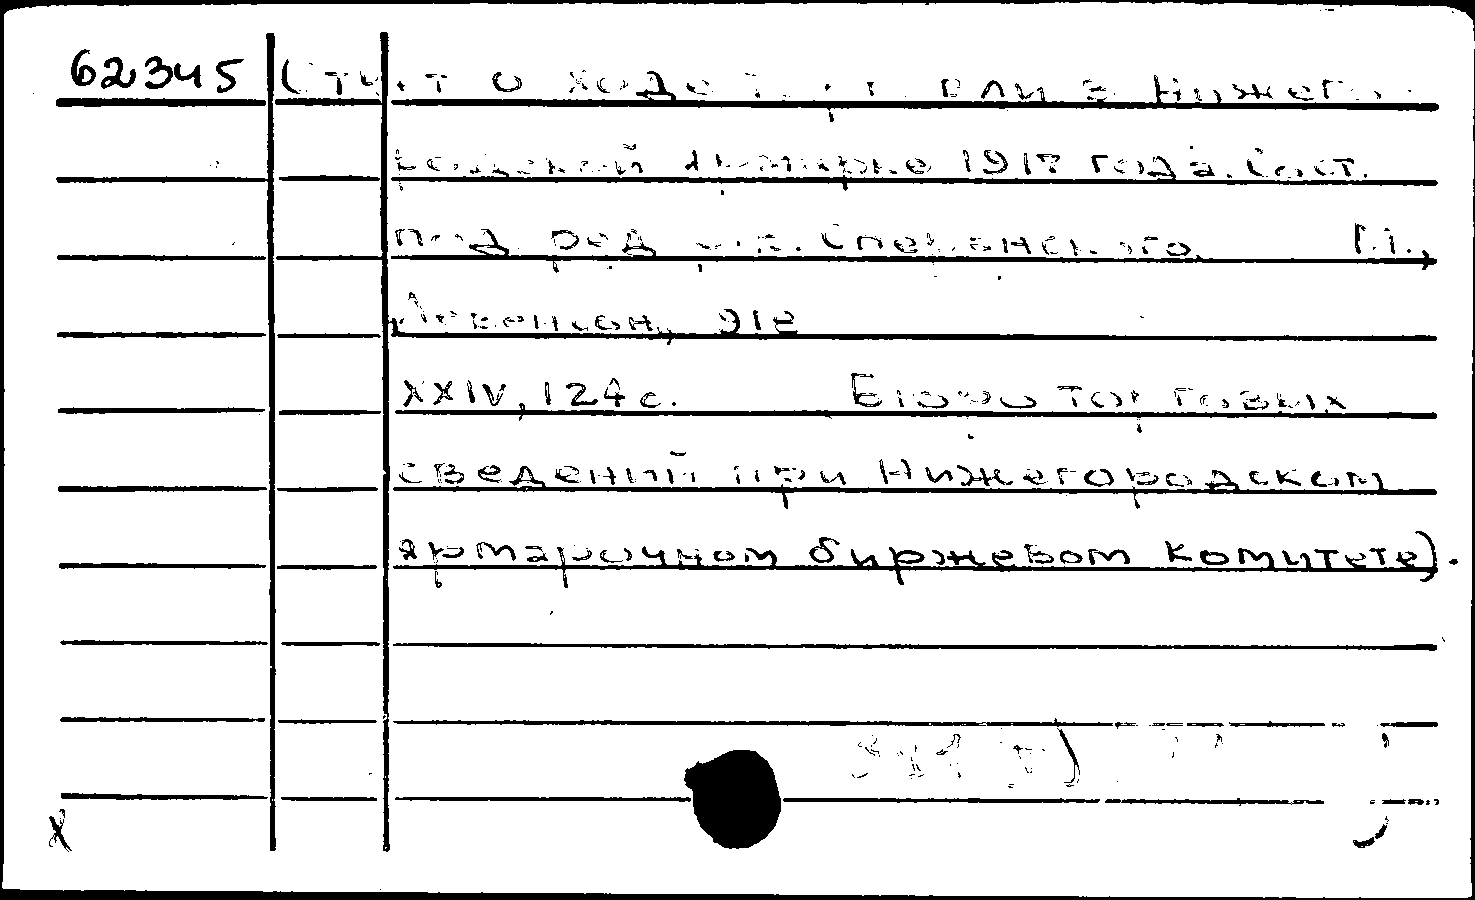 62345 Отчет о ходе торговли в Нижего-
родской ярмарке 1917 года. Сост.
под ред. Сперанского. М.,
Левенсон, 918
XXIV, 124 с. Бюро торговых
сведений при Нижегородском
ярмарочном биржевом комитете).